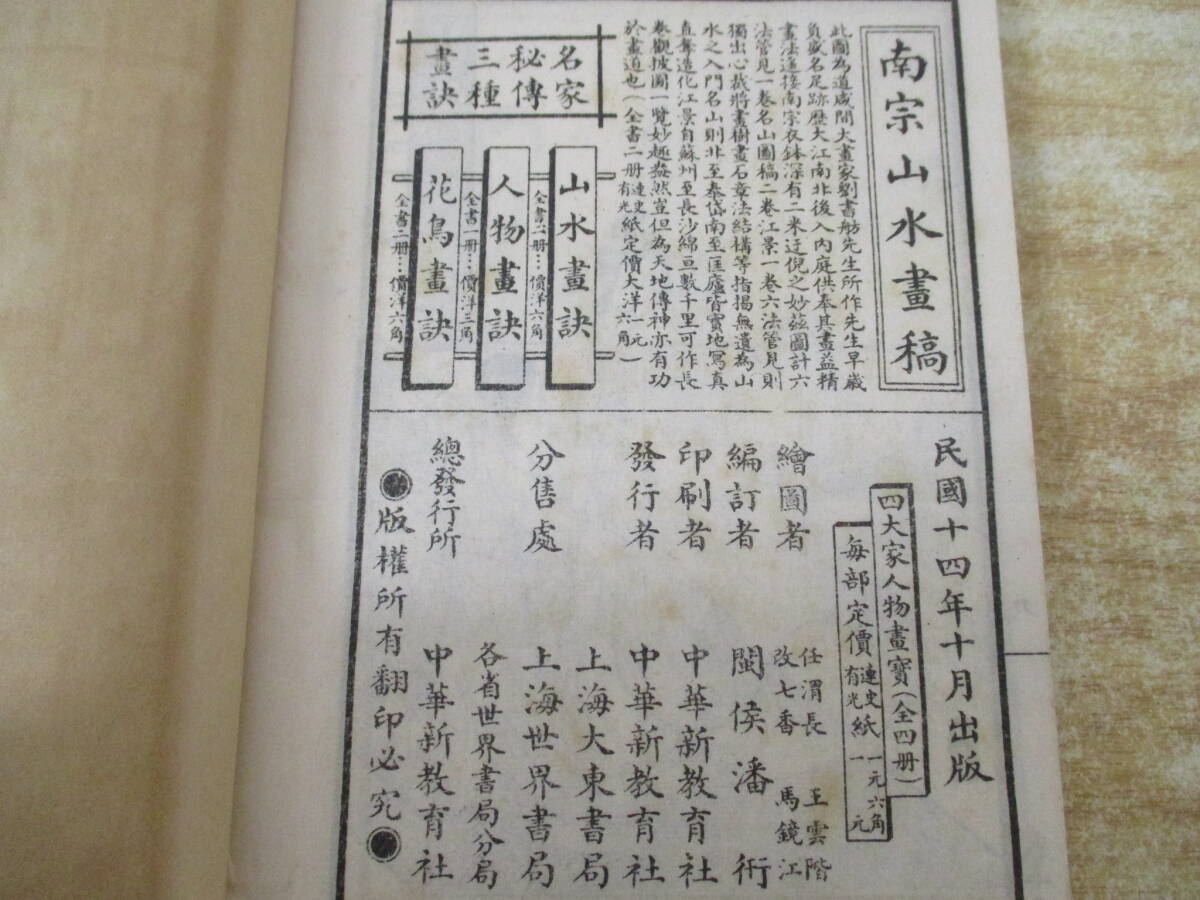 南宗山水畫稿
此圖為道咸間大畫家劉書舫先生所作先生早歲
負盛名足跡歷大江南北後入內庭供奉其畫益精
畫法遠接南宗衣鉢深有二米迂倪之妙茲圖計六
法管見一卷名山圖稿二卷江景一卷六法管見則
獨出心裁將畫樹畫石章法結構等指揭無遺為山
水之入門名山則北至泰岱南至匡廬皆實地寫真
直奪造化江景自蘇州至長沙綿亘數千里可作長
卷觀披圖一覽妙趣盎然豈但為天地傳神亦有功
於畫道也(全書二册連史有光紙定價大洋一元六角一)
名家秘傳三種畫訣
山水畫訣
全書二册…價洋六角
人物畫訣
全書一册…價洋三角
花鳥畫訣
全書二册…價洋六角
民國十四年十月出版
四大家人物畫寶(全四册)
每部定價連史有光紙一元六角一元
繪圖者 任渭長 王雲階 改七香 馬鏡江
編訂者 閩侯潘術
印刷者 中華新教育社
發行者 中華新教育社
上海大東書局
分售處 上海世界書局
各省世界書局分局
總發行所 中華新教育社
版權所有翻印必究